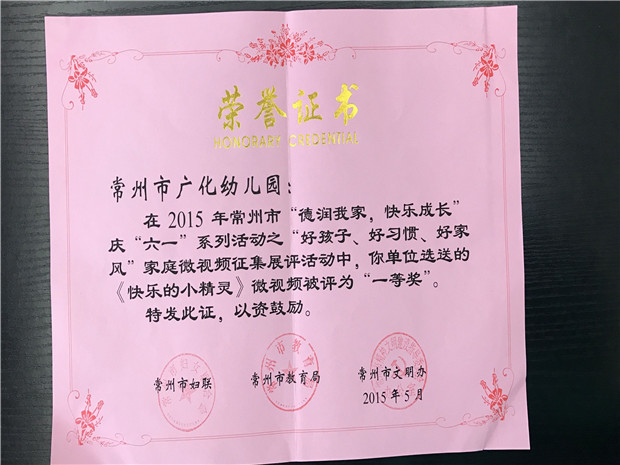 荣誉证书
HONORARY CREDENTIAL
常州市广化幼儿园：
在 2015 年常州市“德润我家，快乐成长”
庆“六一”系列活动之“好孩子、好习惯、好家
风”家庭微视频征集展评活动中，你单位选送的
《快乐的小精灵》微视频被评为“一等奖”。
特发此证，以资鼓励。
常州市妇联 常州市教育局 常州市文明办
2015 年 5 月